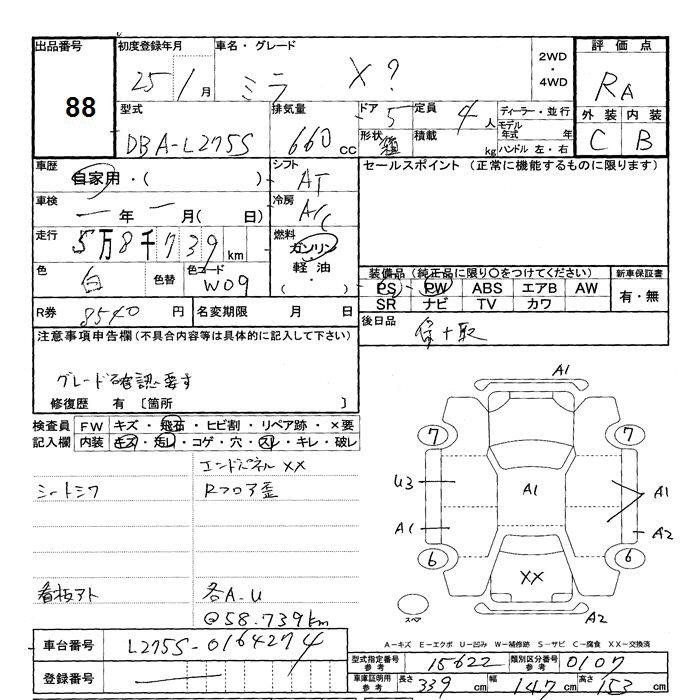 出品番号
88
初度登録年月
25/1月
車名・グレード
ミラ X?
2WD
・
4WD
評価点
RA
外装 内装
C B
型式
DBA-L275S
排気量
660cc
ドア 5
形状
定員 4人
積載 kg
ディーラー・並行
モデル年式 年
ハンドル 左・右
車歴
自家用・( )
シフト
AT
セールスポイント (正常に機能するものに限ります)
車検
ー年ー月( 日)
冷房
A/C
走行
5万8千739km
燃料
ガソリン
・
軽油
・
( )
色
白
色替
色コード
W09
装備品(純正品に限り○をつけてください)
PS PW ABS エアB AW
SR ナビ TV カワ
新車保証書
有・無
R券 8540円
名変期限 月 日
後日品
保+取
注意事項申告欄(不具合内容等は具体的に記入して下さい)
グレード確認要す
修復歴 有 〔箇所 〕
検査員記入欄
FW キズ・飛石・ヒビ割・リペア跡・×要
内装 キズ・汚レ・コゲ・穴・スレ・キレ・破レ
エンドパネルXX
シートシワ
Rフロア歪
看板アト
各A-U
@58.739km
A1
7
7
U3
A1
A1
A1
A2
6
6
XX
スペア
A2
A−キズ E−エクボ U−凹み W−補修跡 S−サビ C−腐食 XX−交換済
車台番号
L275S-0164274
登録番号
型式指定番号参考 15622
類別区分番号参考 0107
車庫証明用参考
長さ 339cm
幅 147cm
高さ 153cm